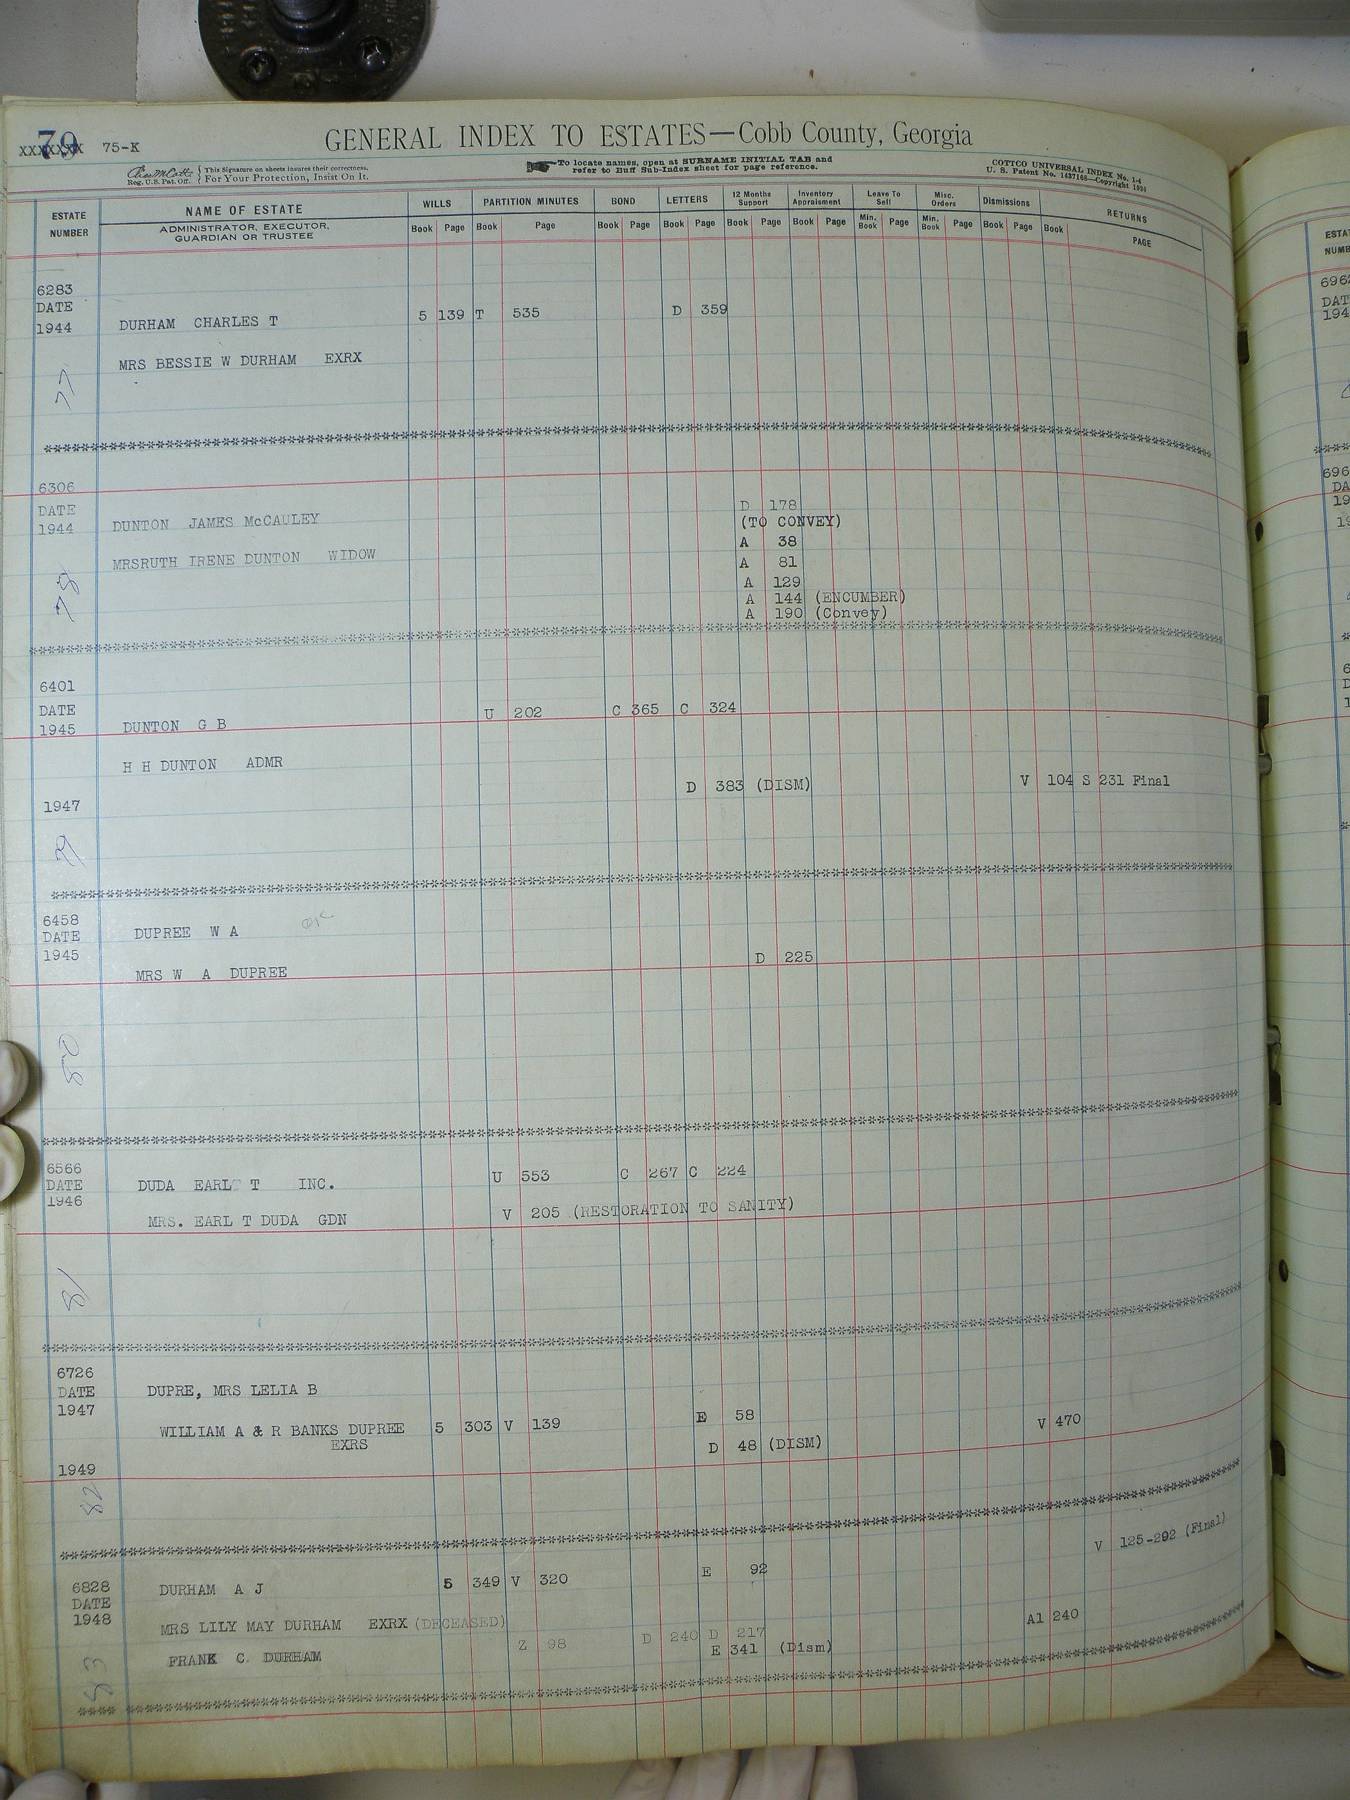 79
XXXXXXX 75-K
GENERAL INDEX TO ESTATES—Cobb County, Georgia
Reg. U.S. Pat. Off.
This Signature on sheets insures their correctness.
For Your Protection, Insist On It.
To locate names, open at SURNAME INITIAL TAB and
refer to Buff Sub-Index sheet for page reference.
COTTCO UNIVERSAL INDEX No. 1-4
U. S. Patent No. 1437168—Copyright 1931
ESTATE NUMBER
NAME OF ESTATE
ADMINISTRATOR, EXECUTOR,
GUARDIAN OR TRUSTEE
WILLS PARTITION MINUTES BOND LETTERS 12 Months Support Inventory Appraisment Leave To Sell Misc. Orders Dismissions RETURNS
Book Page Book Page Book Page Book Page Book Page Book Page Min. Book Page Min. Book Page Book Page Book PAGE
6283
DATE
1944 DURHAM CHARLES T 5 139 T 535 D 359
MRS BESSIE W DURHAM EXRX
77
6306
DATE D 178
1944 DUNTON JAMES McCAULEY (TO CONVEY)
A 38
MRSRUTH IRENE DUNTON WIDOW A 81
A 129
78 A 144 (ENCUMBER)
A 190 (Convey)
6401
DATE U 202 C 365 C 324
1945 DUNTON G B
H H DUNTON ADMR
D 383 (DISM) V 104 S 231 Final
1947
79
6458
DATE DUPREE W A
1945 D 225
MRS W A DUPREE
80
6566 U 553 C 267 C 224
DATE DUDA EARL T INC.
1946
MRS. EARL T DUDA GDN V 205 (RESTORATION TO SANITY)
81
6726
DATE DUPRE, MRS LELIA B
1947
WILLIAM A & R BANKS DUPREE 5 303 V 139 E 58 V 470
EXRS D 48 (DISM)
1949
82
V 125-292 (Final)
6828 DURHAM A J 5 349 V 320 E 92
DATE
1948 MRS LILY MAY DURHAM EXRX (DECEASED) A1 240
Z 98 D 240 D 217
FRANK C. DURHAM E 341 (Dism)
83
ESTA
NUMB
696
DAT
194
696
DA
19
19
6
D
1